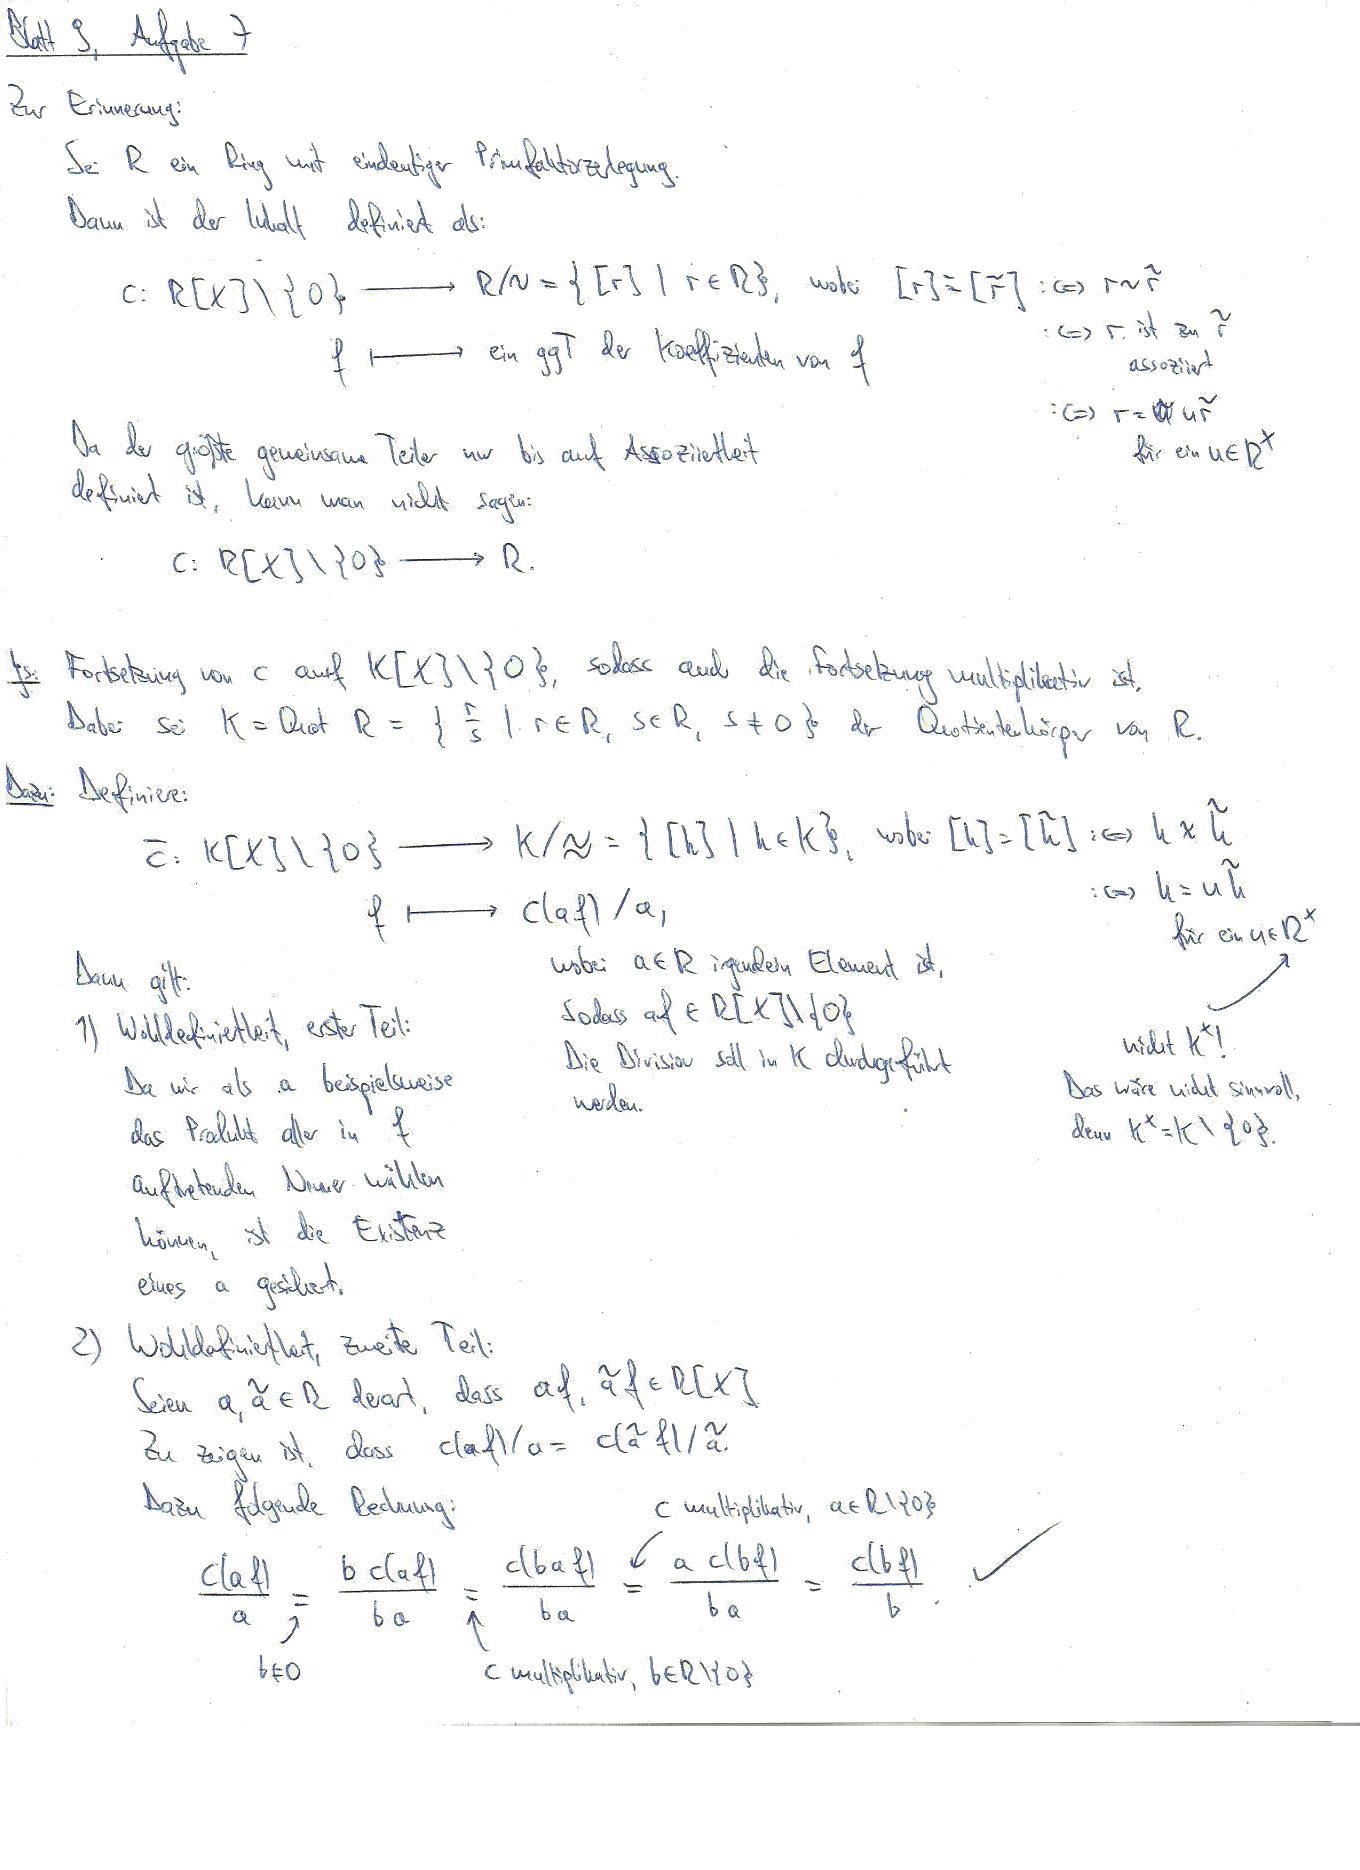 Blatt 9, Aufgabe 7
Zur Erinnerung:
Sei R ein Ring mit eindeutiger Primfaktorzerlegung.
Dann ist der Inhalt definiert als:
c: R[X]\{0} ⟶ R/~ = {[r] | r ∈ R}, wobei [r] = [r̃] :⇔ r ~ r̃
:⇔ r ist zu r̃
assoziiert
f ⟼ ein ggT der Koeffizienten von f
:⇔ r = u r̃
für ein u ∈ R^×
Da der größte gemeinsame Teiler nur bis auf Assoziiertheit
definiert ist, kann man nicht sagen:
c: R[X]\{0} ⟶ R.
Fortsetzung von c auf K[X]\{0}, sodass auch die Fortsetzung multiplikativ ist.
Dabei sei K = Quot R = { r/s | r ∈ R, s ∈ R, s ≠ 0 } der Quotientenkörper von R.
Dazu: Definiere:
c̄: K[X]\{0} ⟶ K/≈ = {[k] | k ∈ K}, wobei [k] = [k̃] :⇔ k ≈ k̃
:⇔ k = u k̃
für ein u ∈ R^×
f ⟼ c(af)/a,
wobei a ∈ R irgendein Element ist,
sodass af ∈ R[X]\{0}
Die Division soll in K durchgeführt
werden.
nicht K^×!
Das wäre nicht sinnvoll,
denn K^× = K\{0}.
Dann gilt:
1) Wohldefiniertheit, erster Teil:
Da wir als a beispielsweise
das Produkt aller in f
auftretenden Nenner wählen
können, ist die Existenz
eines a gesichert.
2) Wohldefiniertheit, zweite Teil:
Seien a, ã ∈ R derart, dass af, ãf ∈ R[X]
Zu zeigen ist, dass c(af)/a = c(ãf)/ã.
Dazu folgende Rechnung:
c multiplikativ, a ∈ R\{0}
c(af)/a = b c(af)/ba = c(baf)/ba = a c(bf)/ba = c(bf)/b. ✓
b ≠ 0
c multiplikativ, b ∈ R\{0}